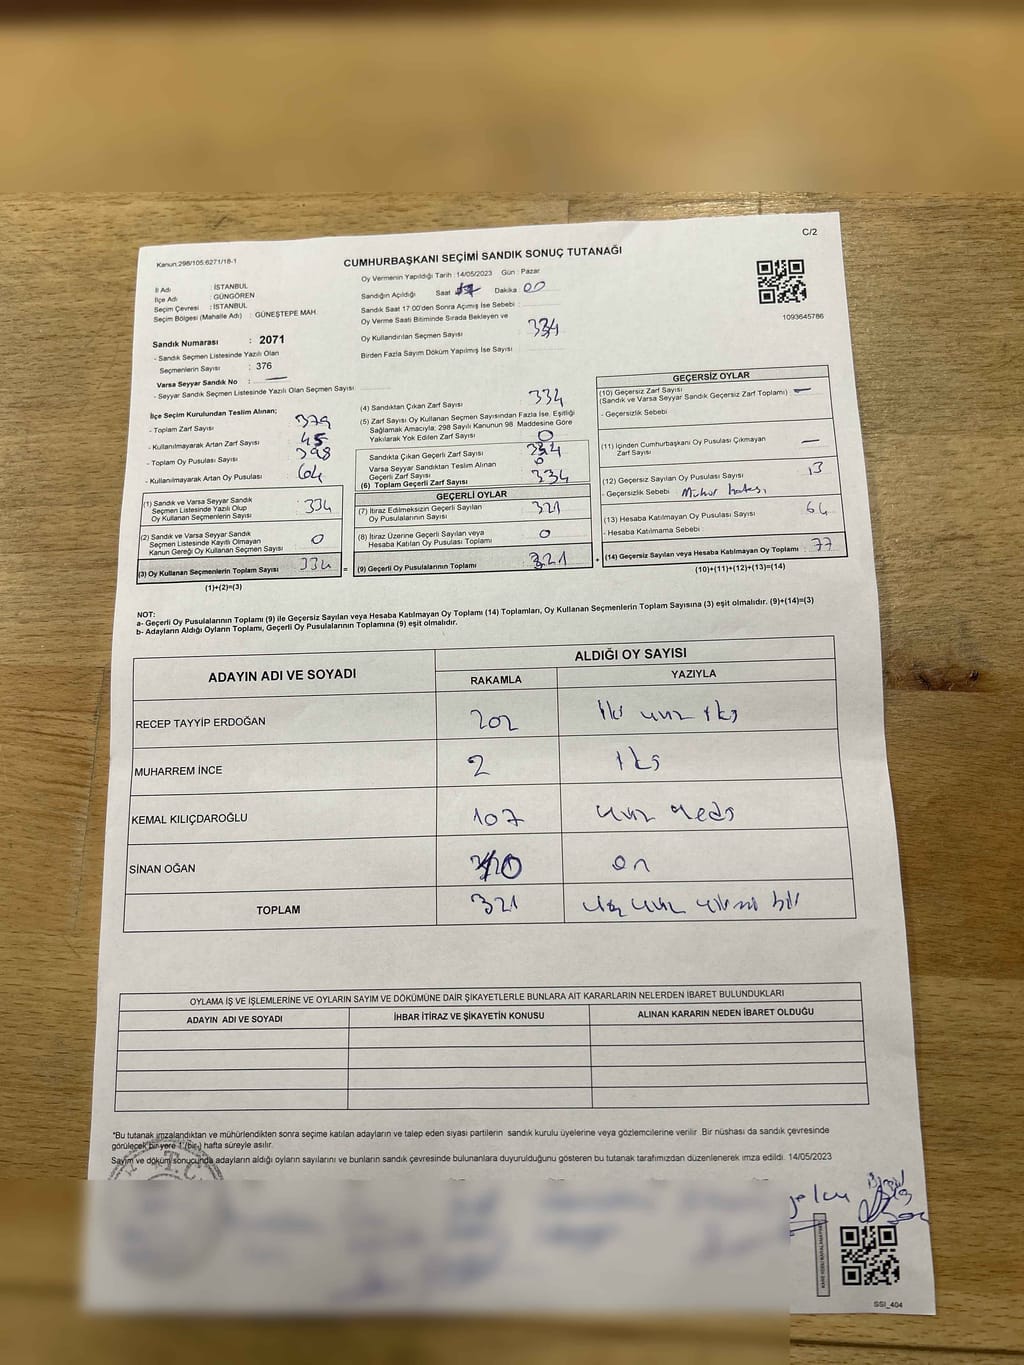 C/2
Kanun:298/105.6271/18-1
CUMHURBAŞKANI SEÇİMİ SANDIK SONUÇ TUTANAĞI
İl Adı : İSTANBUL
İlçe Adı : GÜNGÖREN
Seçim Çevresi : İSTANBUL
Seçim Bölgesi (Mahalle Adı) : GÜNEŞTEPE MAH.
Oy Vermenin Yapıldığı Tarih :14/05/2023 Gün : Pazar
Sandığın Açıldığı Saat Dakika 00
Sandık Saat 17:00'den Sonra Açımış İse Sebebi :
Oy Verme Saati Bitiminde Sırada Bekleyen ve
Oy Kullandırılan Seçmen Sayısı 334
Birden Fazla Sayım Döküm Yapılmış İse Sayısı
1093645786
Sandık Numarası : 2071
- Sandık Seçmen Listesinde Yazılı Olan
Seçmenlerin Sayısı : 376
Varsa Seyyar Sandık No : —
- Seyyar Sandık Seçmen Listesinde Yazılı Olan Seçmen Sayısı
İlçe Seçim Kurulundan Teslim Alınan;
- Toplam Zarf Sayısı 379
- Kullanılmayarak Artan Zarf Sayısı 45
- Toplam Oy Pusulası Sayısı 398
- Kullanılmayarak Artan Oy Pusulası 64
(1) Sandık ve Varsa Seyyar Sandık
Seçmen Listesinde Yazılı Olup
Oy Kullanan Seçmenlerin Sayısı 334
(2) Sandık ve Varsa Seyyar Sandık
Seçmen Listesinde Kayıtlı Olmayan
Kanun Gereği Oy Kullanan Seçmen Sayısı 0
(3) Oy Kullanan Seçmenlerin Toplam Sayısı 334 =
(1)+(2)=(3)
(4) Sandıktan Çıkan Zarf Sayısı 334
(5) Zarf Sayısı Oy Kullanan Seçmen Sayısından Fazla İse, Eşitliği
Sağlamak Amacıyla; 298 Sayılı Kanunun 98. Maddesine Göre
Yakılarak Yok Edilen Zarf Sayısı 0
Sandıkta Çıkan Geçerli Zarf Sayısı 334
Varsa Seyyar Sandıktan Teslim Alınan
Geçerli Zarf Sayısı 0
(6) Toplam Geçerli Zarf Sayısı 334
GEÇERLİ OYLAR
(7) İtiraz Edilmeksizin Geçerli Sayılan
Oy Pusulalarının Sayısı 321
(8) İtiraz Üzerine Geçerli Sayılan veya
Hesaba Katılan Oy Pusulası Toplamı 0
(9) Geçerli Oy Pusulalarının Toplamı 321 +
GEÇERSİZ OYLAR
(10) Geçersiz Zarf Sayısı
(Sandık ve Varsa Seyyar Sandık Geçersiz Zarf Toplamı) —
- Geçersizlik Sebebi
(11) İçinden Cumhurbaşkanı Oy Pusulası Çıkmayan
Zarf Sayısı —
(12) Geçersiz Sayılan Oy Pusulası Sayısı 13
- Geçersizlik Sebebi Mühür hatası
(13) Hesaba Katılmayan Oy Pusulası Sayısı 64
- Hesaba Katılmama Sebebi
(14) Geçersiz Sayılan veya Hesaba Katılmayan Oy Toplamı 77
(10)+(11)+(12)+(13)=(14)
NOT:
a- Geçerli Oy Pusulalarının Toplamı (9) ile Geçersiz Sayılan veya Hesaba Katılmayan Oy Toplamı (14) Toplamları, Oy Kullanan Seçmenlerin Toplam Sayısına (3) eşit olmalıdır. (9)+(14)=(3)
b- Adayların Aldığı Oyların Toplamı, Geçerli Oy Pusulalarının Toplamına (9) eşit olmalıdır.
ADAYIN ADI VE SOYADI ALDIĞI OY SAYISI
RAKAMLA YAZIYLA
RECEP TAYYİP ERDOĞAN 202 iki yüz iki
MUHARREM İNCE 2 iki
KEMAL KILIÇDAROĞLU 107 yüz yedi
SİNAN OĞAN 10 on
TOPLAM 321 üç yüz yirmi bir
OYLAMA İŞ VE İŞLEMLERİNE VE OYLARIN SAYIM VE DÖKÜMÜNE DAİR ŞİKAYETLERLE BUNLARA AİT KARARLARIN NELERDEN İBARET BULUNDUKLARI
ADAYIN ADI VE SOYADI İHBAR İTİRAZ VE ŞİKAYETİN KONUSU ALINAN KARARIN NEDEN İBARET OLDUĞU
*Bu tutanak imzalandıktan ve mühürlendikten sonra seçime katılan adayların ve talep eden siyasi partilerin sandık kurulu üyelerine veya gözlemcilerine verilir Bir nüshası da sandık çevresinde
görülecek bir yere 1 (bir) hafta süreyle asılır.
Sayım ve döküm sonucunda adayların aldığı oyların sayılarını ve bunların sandık çevresinde bulunanlara duyurulduğunu gösteren bu tutanak tarafımızdan düzenlenerek imza edildi. 14/05/2023
T.C.
SSI_404